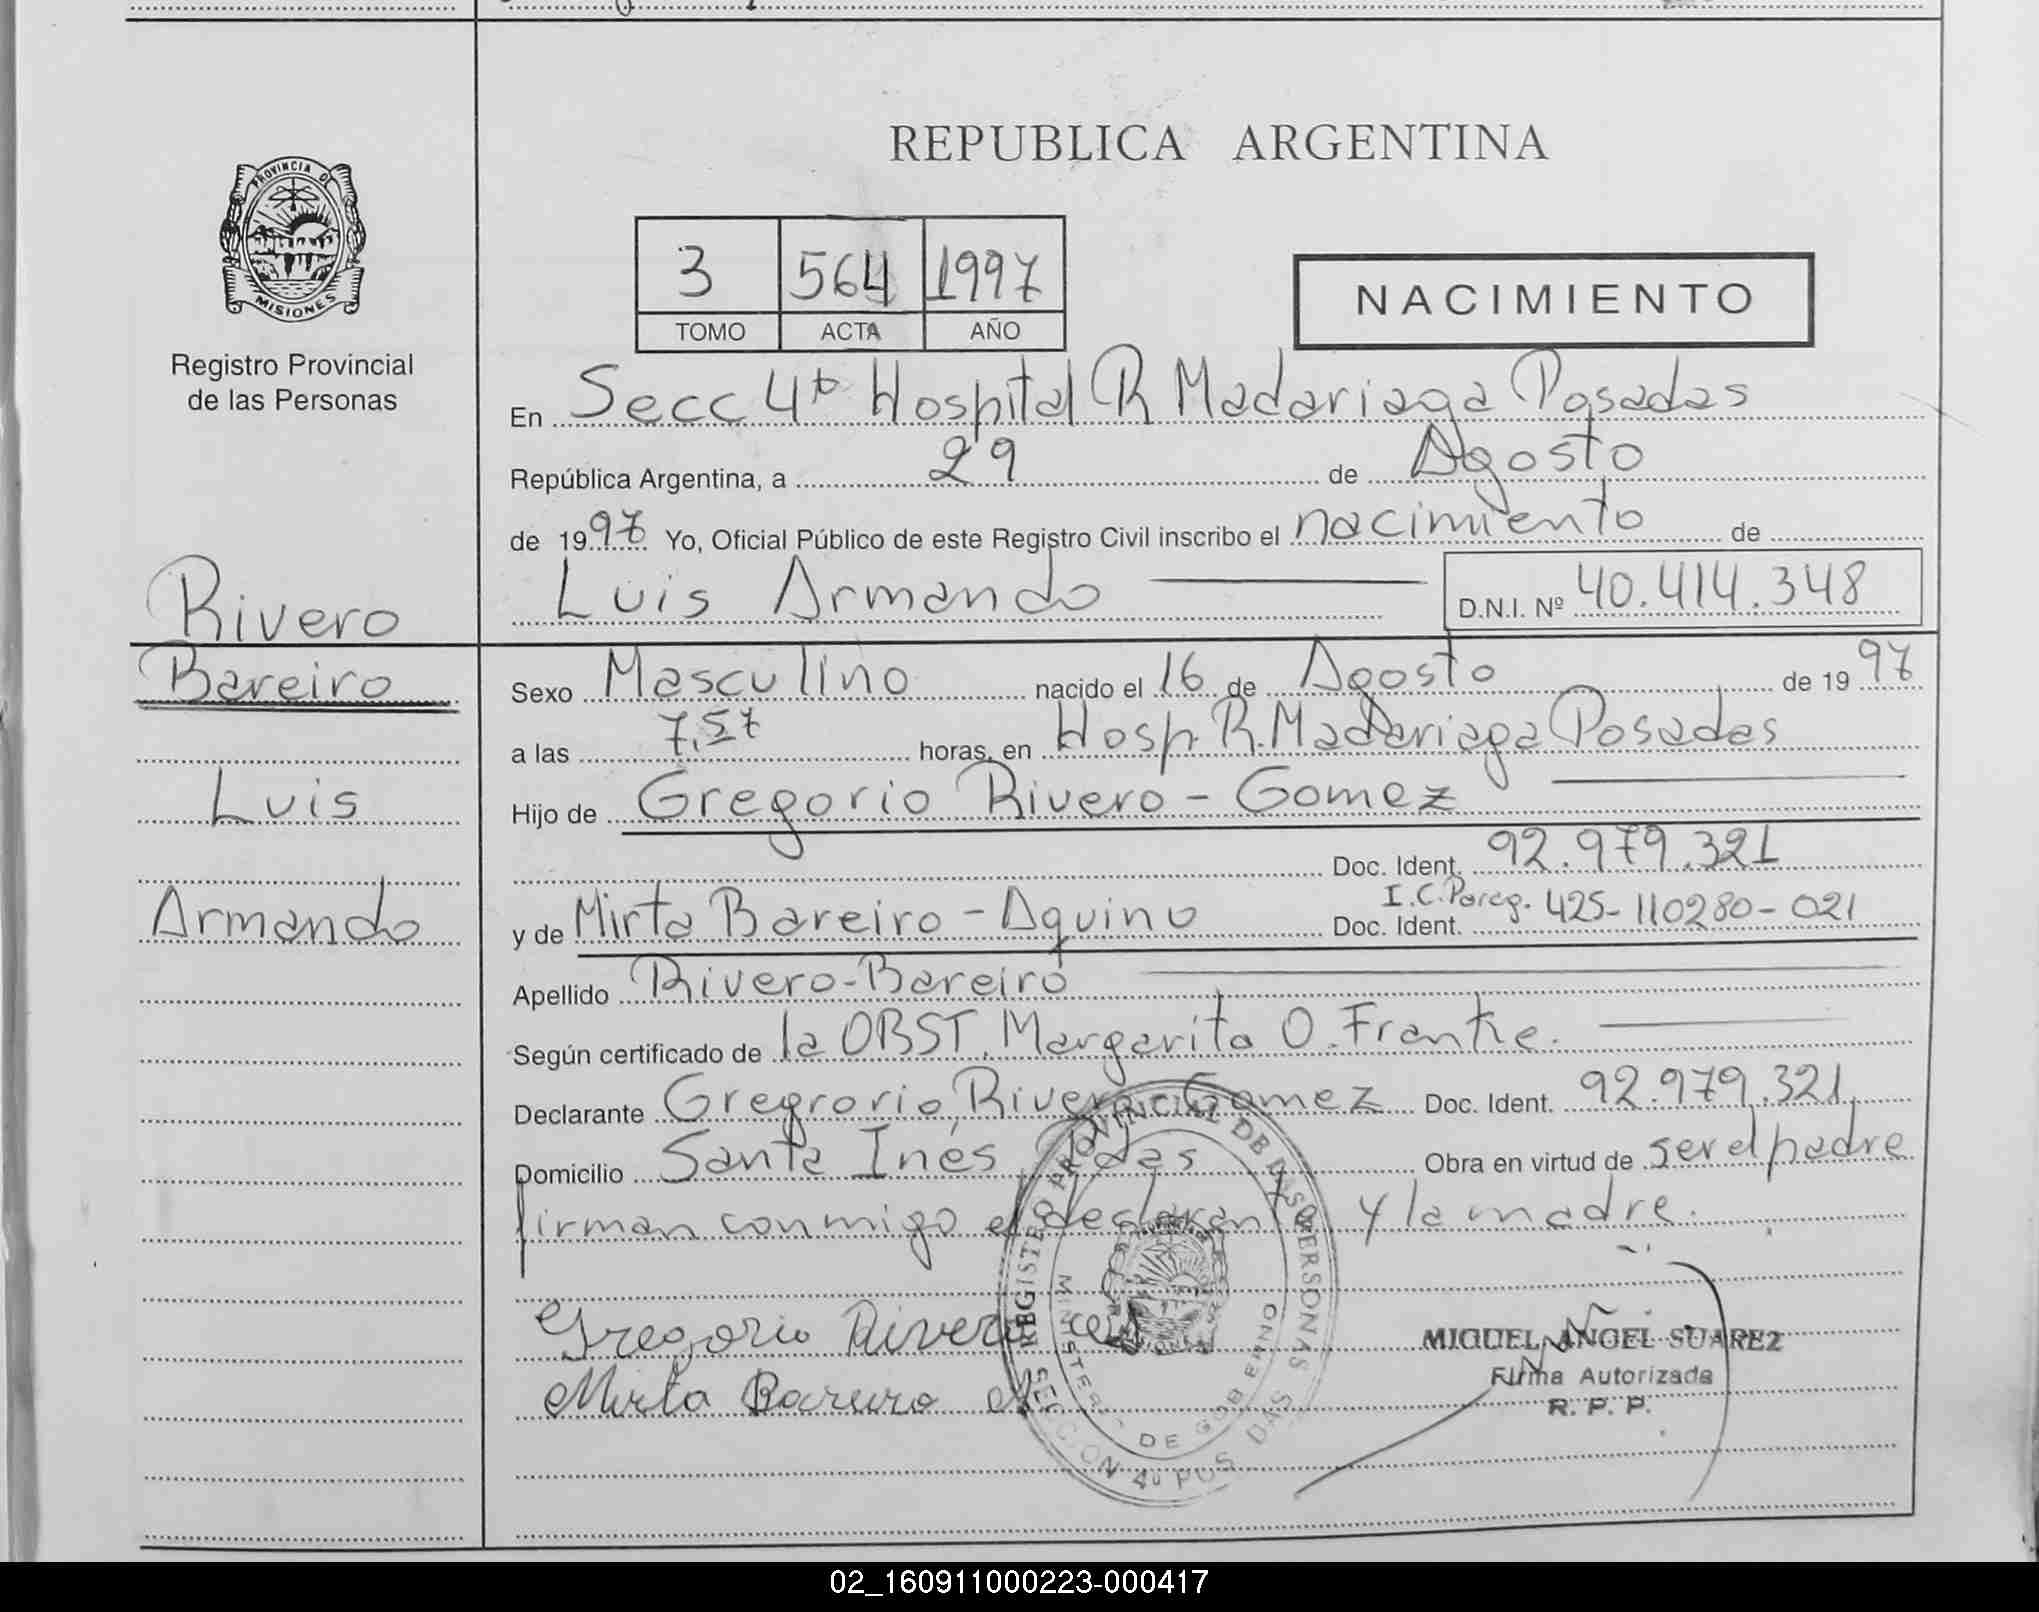 REPUBLICA ARGENTINA
PROVINCIA D
MISIONES
Registro Provincial
de las Personas
3 564 1997
TOMO ACTA AÑO
NACIMIENTO
En Secc 4ta Hospital R Madariaga Posadas
República Argentina, a 29 de Agosto
de 1997 Yo, Oficial Público de este Registro Civil inscribo el nacimiento de
Luis Armando D.N.I. Nº 40.414.348
Rivero
Bareiro
Luis
Armando
Sexo Masculino nacido el 16 de Agosto de 1997
a las 7.57 horas, en Hosp. R. Madariaga Posadas
Hijo de Gregorio Rivero - Gomez
Doc. Ident. 92.979.321
y de Mirta Bareiro - Aquino Doc. Ident. I.C. Parag. 425-110280-021
Apellido Rivero-Bareiro
Según certificado de la OBST. Margarita O. Franke.
Declarante Gregrorio Rivero Gomez Doc. Ident. 92.979.321
Domicilio Santa Inés Pdas Obra en virtud de ser el padre
firman conmigo el declarante y la madre.
Gregorio Rivero
Mirta Bareiro
REGISTRO PROVINCIAL DE LAS PERSONAS
MINISTERIO DE GOBIERNO
SECCION 4a PDAS
MIGUEL ANGEL SUAREZ
Firma Autorizada
R. P. P.
02_160911000223-000417